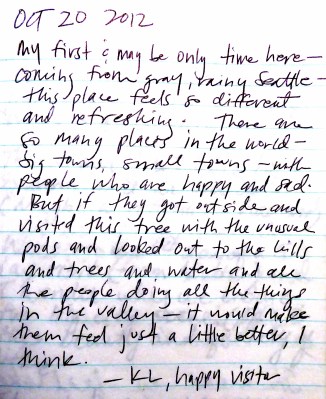 OCT 20 2012
My first & may be only time here—
coming from gray, rainy Seattle—
this place feels so different
and refreshing. There are
so many places in the world—
big towns, small towns—with
people who are happy and sad.
But if they got outside and
visited this tree with the unusual
pods and looked out to the hills
and trees and water and all
the people doing all the things
in the valley—it would make
them feel just a little better, I
think.
—KL, happy visitor